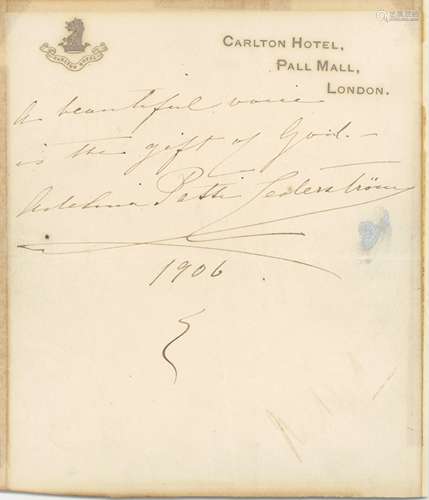 CARLTON HOTEL
CARLTON HOTEL,
PALL MALL,
LONDON.
A beautiful voice
is the gift of God. –
Adelina Patti Cederström
1906